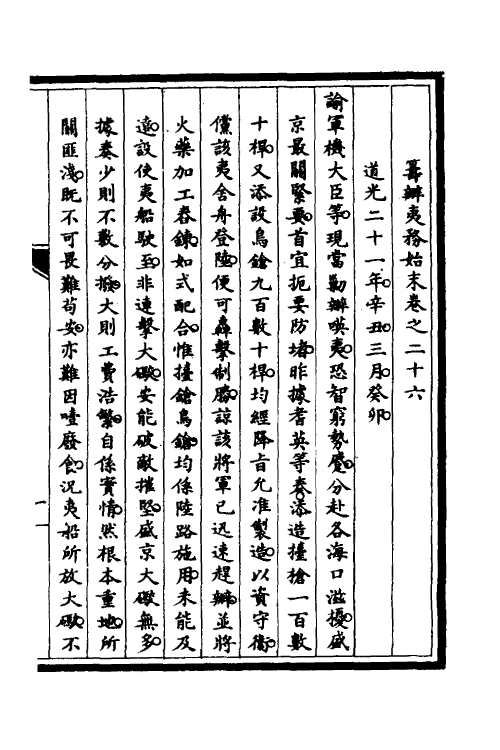 籌辦夷務始末卷之二十六
道光二十一年。辛丑。三月。癸卯。
諭軍機大臣等。現當勦辦嘆夷。恐智窮勢蹙。分赴各海口滋擾。盛
京最關緊要。首宜扼要防堵。昨據耆英等奏。添造擡槍一百數
十桿。又添設鳥鎗九百數十桿。均經降旨允准製造。以資守衛。
儻該夷舍舟登陸。便可轟擊制勝。諒該將軍已迅速趕辦。並將
火藥加工舂鍊。如式配合。惟擡鎗鳥鎗。均係陸路施用。未能及
遠。設使夷船駛至。非連擊大礮。安能破敵摧堅。盛京大礮無多。
據奏少則不敷分撥。大則工費浩繁。自係實情。然根本重地。所
關匪淺。既不可畏難苟安。亦難因噎廢食。況夷船所放大礮。不
一